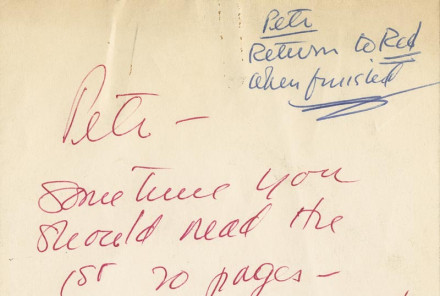 Pete
Return to Red
when finished
Pete —
Sometime you
should read the
1st 20 pages —